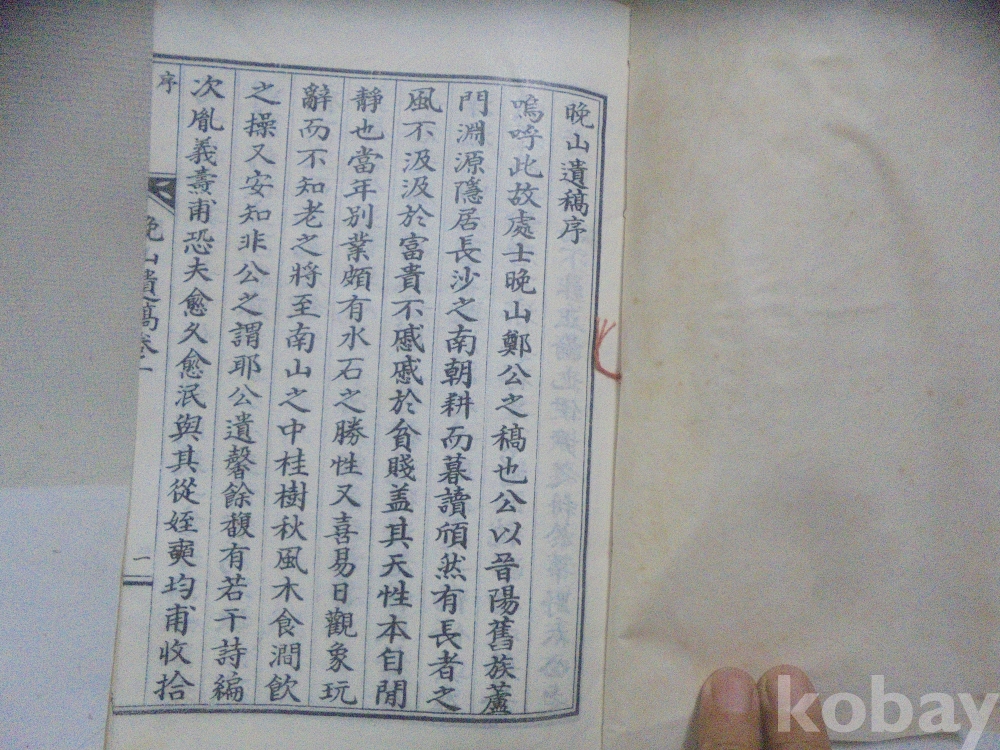 晚山遺稿序
嗚呼此故處士晚山鄭公之稿也公以晉陽舊族蘆
門淵源隱居長沙之南朝耕而暮讀頎然有長者之
風不汲汲於富貴不慼慼於貧賤盖其天性本自閒
靜也當年別業頗有水石之勝性又喜易日觀象玩
辭而不知老之將至南山之中桂樹秋風木食澗飮
之操又安知非公之謂耶公遺馨餘馥有若干詩編
次胤義燾甫恐夫愈久愈泯與其從姪奭均甫收拾
序
晚山遺稿卷一
一
kobay